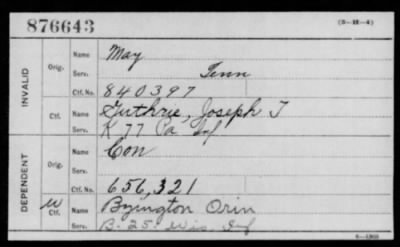 876643
(5-M-4)
INVALID
Orig.
Name May
Serv. Tenn
Ctf. No. 840397
Ctf.
Name Guthrie, Joseph T
Serv. K 77 Pa Inf
DEPENDENT
Orig.
Name Con
Serv.
Ctf. No. 656,321
W
Ctf.
Name Byington Orin
Serv. B. 25. Wis. Inf